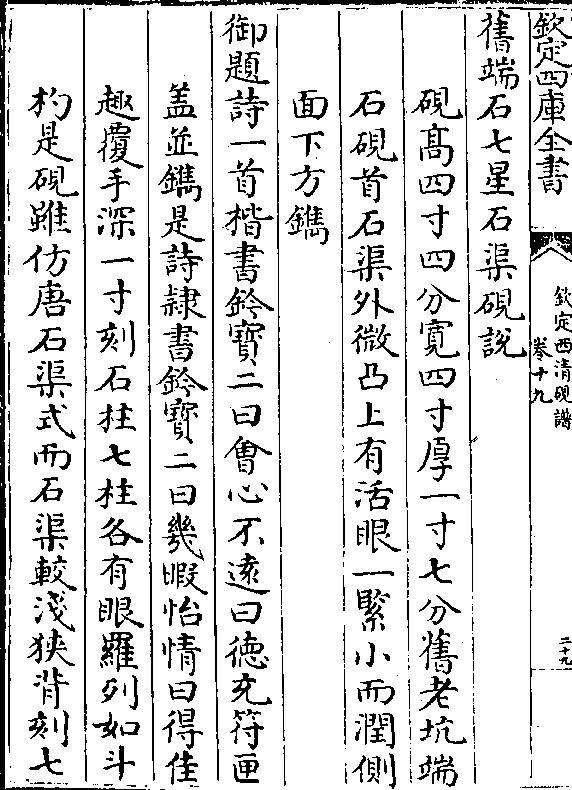 欽定四庫全書
欽定西清硯譜
卷十九
二十九
舊端石七星石渠硯說
硯髙四寸四分寛四寸厚一寸七分舊老坑端
石硯首石渠外微凸上有活眼一緊小而潤側
面下方鐫
御題詩一首楷書鈐寳二曰㑹心不逺曰徳充符匣
盖並鐫是詩隷書鈐寳二曰㡬暇怡情曰得佳
趣覆手深一寸刻石柱七柱各有眼羅列如斗
杓是硯雖仿唐石渠式而石渠較淺狹背刻七